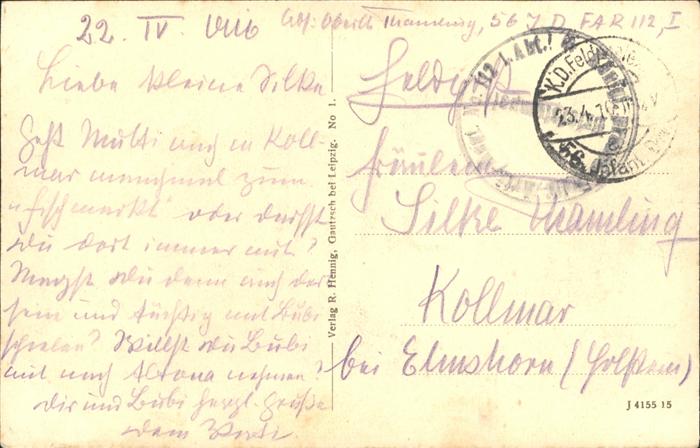 22. IV. 1916 Abs: Oberlt Thamling, 56 J D FAR 112, I
Liebe kleine Silke
Geht Mutti auch in Koll-
mar manchmal zum
"Fischmarkt" oder darfst
Du dort immer mit?
Magst Du denn auch
sein und tüchtig mit Bubi
spielen? Willst Du Bubi
mit nach Altona nehmen?
Dir und Bubi herzl. Grüße
Dein Vati
Verlag R. Hennig, Gautzsch bei Leipzig. No 1.
Feldpost
Fräulein
Silke Thamling
Kollmar
bei Elmshorn (Holstein)
K.D. Feldpost
23.4.16
56. Infant. Div.
112 I. Abt.
J 4155 15